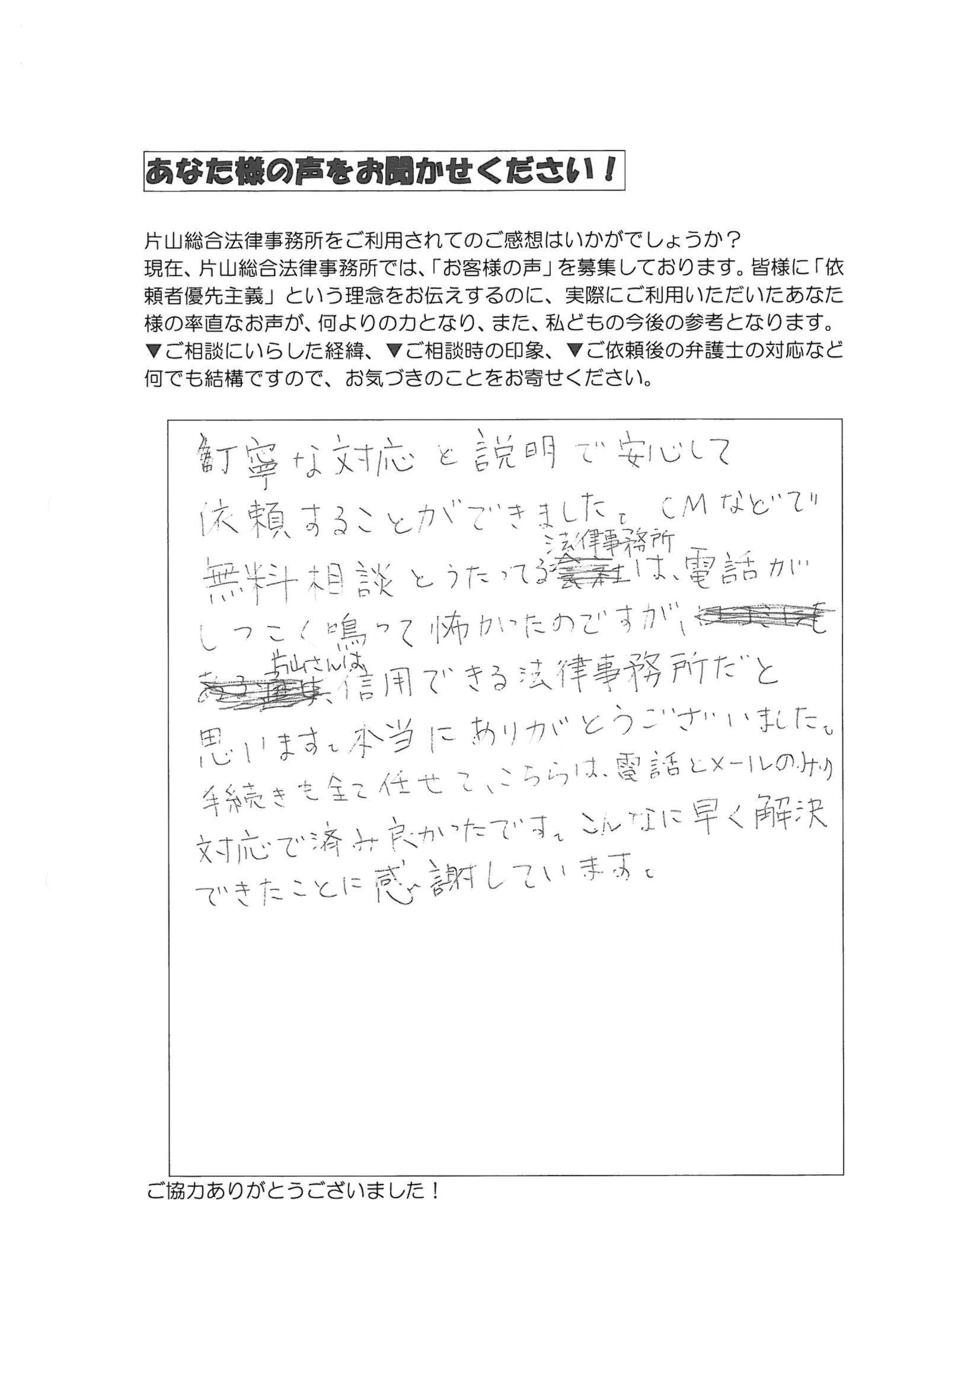 あなた様の声をお聞かせください!
片山総合法律事務所をご利用されてのご感想はいかがでしょうか?
現在、片山総合法律事務所では、「お客様の声」を募集しております。皆様に「依
頼者優先主義」という理念をお伝えするのに、実際にご利用いただいたあなた
様の率直なお声が、何よりの力となり、また、私どもの今後の参考となります。
▼ご相談にいらした経緯、▼ご相談時の印象、▼ご依頼後の弁護士の対応など
何でも結構ですので、お気づきのことをお寄せください。
丁寧な対応と説明で安心して
依頼することができました。CMなどで
法律事務所
無料相談とうたってる会社は、電話が
しつこく鳴って怖かったのですが、
片山さんは
信用できる法律事務所だと
思います。本当にありがとうございました。
手続きも全て任せて、こちらは、電話とメールのみの
対応で済み良かったです。こんなに早く解決
できたことに感謝しています。
ご協力ありがとうございました!